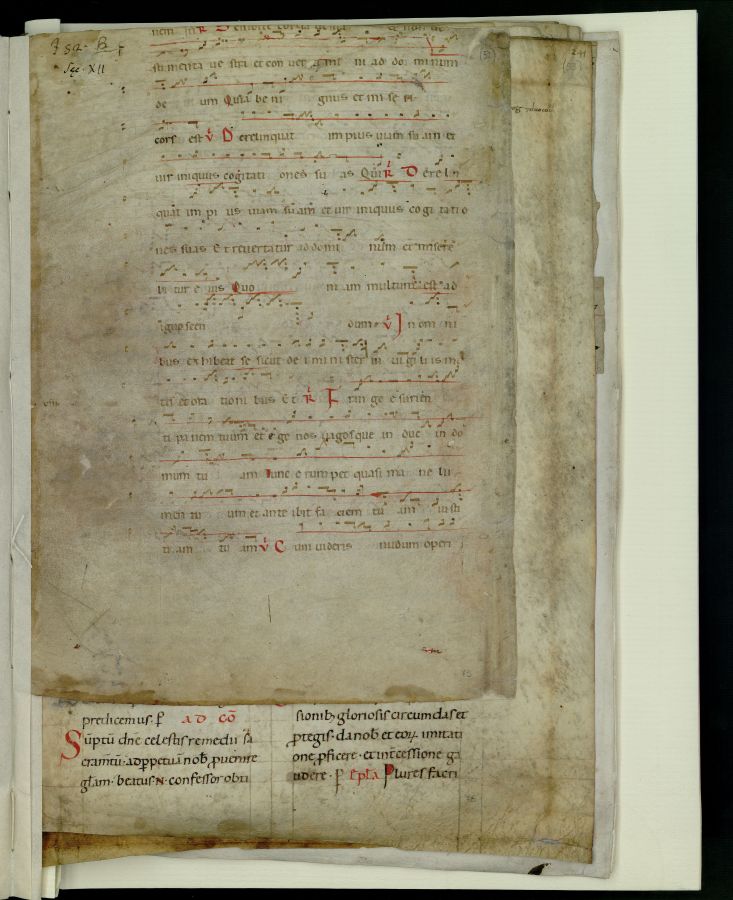 F 32. B
Sec. XII
su menta ve stri et con ver gimi ni ad do minum
de um Quia be ni gnus et mi se ri
cors est V̇ Derelinquat impius viam su am et
vir iniquus cogitati ones su as Qui Ṙ Dereli n
quat im pi us viam suam et vir iniquus co gi tati o
nes suas Et revertatur ad domi num et misere
bi tur e ius Quo ni am multum est ad
ignoscen dum V̇ In om ni
bus exhibeat se sicut de i mi ni ster in vi gi li is m
tis et ora tioni bus Et Ṙ Fran ge esurien
ti panem tuum et e ge nos vagosque in duc in do
mum tu am Tunc e rumpet quasi ma ne lu
men tu um et ante ibit fa ciem tu am iusti
ti am tu am V̇ Cum videris nudum operi
predicemus. ꝑ AD CŌ
Suptū dne celestis remedii sa
cramtū. ad ꝑpetuā nob ꝓvenire
glam. beatus N. confessor obti
sionibꝫ gloriosis circumdas et
ꝓtegis. da nob et eoꝝ imitati
one ꝓficere. et int̄cessione ga
udere. ꝑ Plures facti